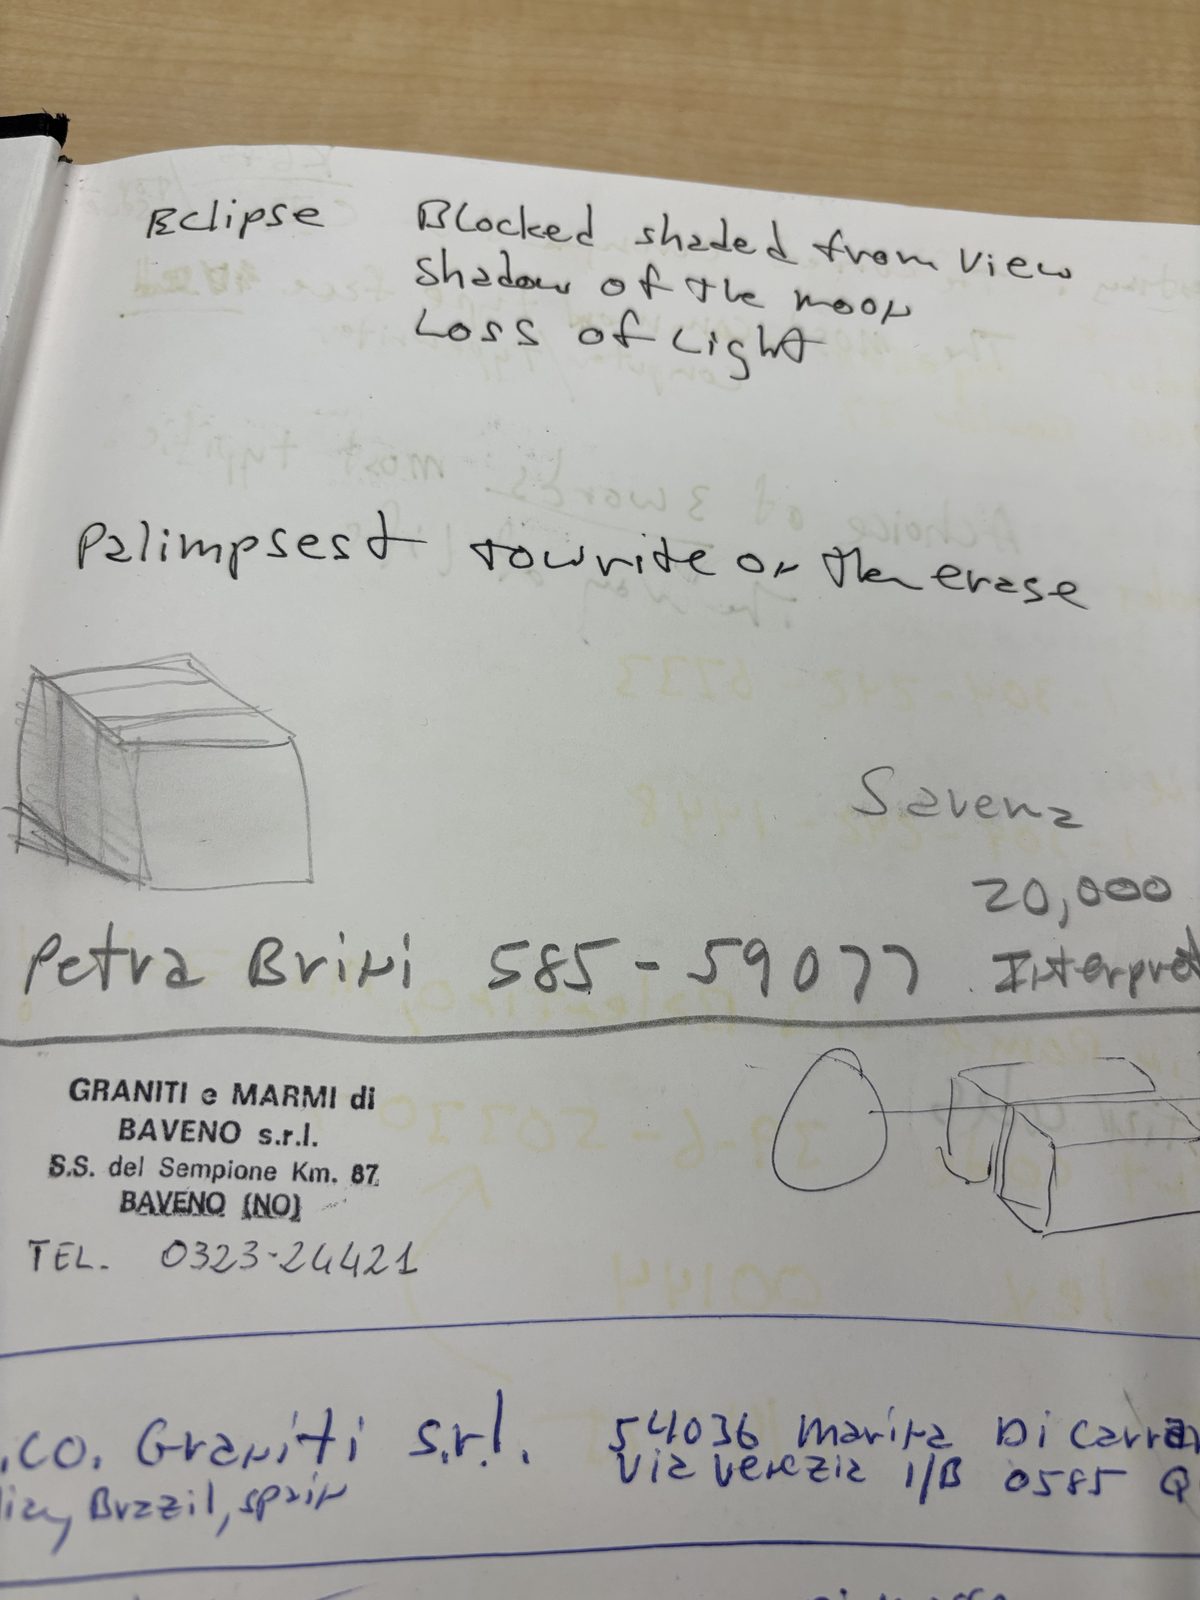 Eclipse Blocked shaded from view
shadow of the moon
Loss of Light
Palimpsest to write on then erase
Savena
20,000
Petra Brini 585-59077 Interpret
GRANITI e MARMI di
BAVENO s.r.l.
S.S. del Sempione Km. 87
BAVENO (NO)
TEL. 0323-24421
.CO. Graniti s.r.l. 54036 Marina Di Carra
Via Venezia 1/B 0585
Brazil, Spain